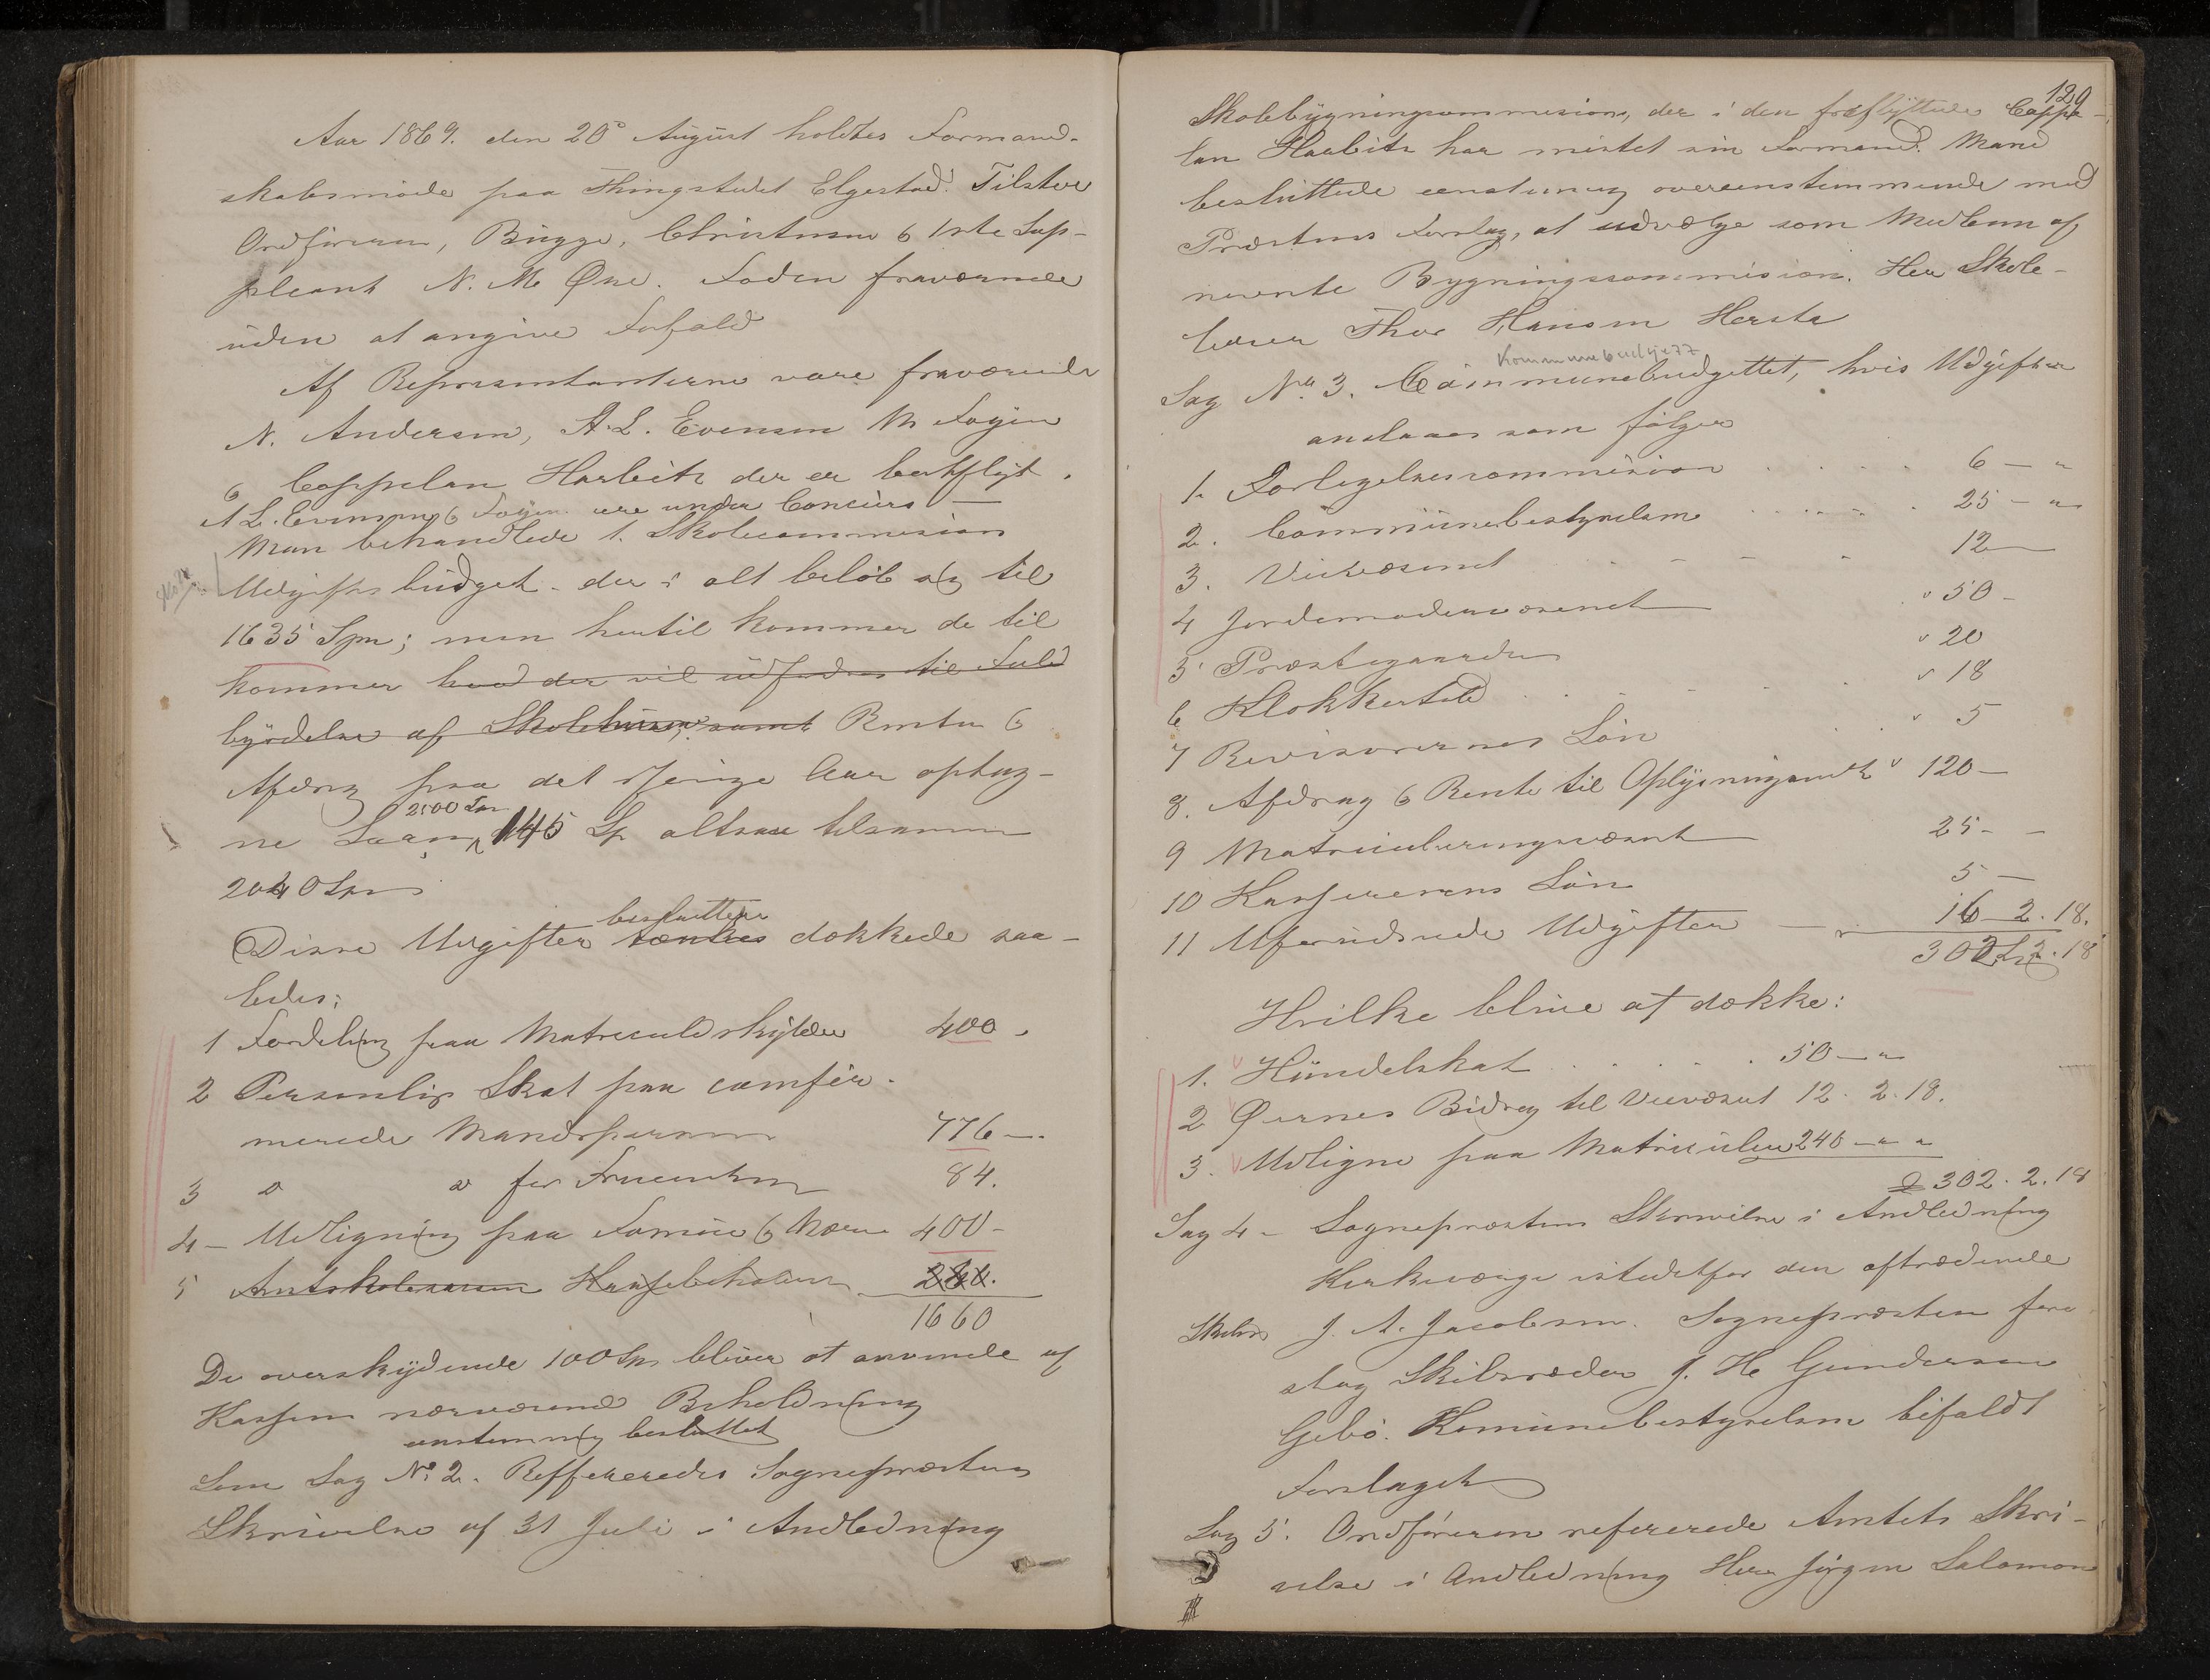 Aar 1869. den 20de August holdtes Formand-
skabsmöde paa Thingstedet Elgestad. Tilstede
Ordföreren, Bugge, Christensen & 1ste Sup-
pleant N. M. Øre. Foden fraværende
uden at angive Forfald
Af Representanterne vare fraværende
N. Andersen, A. L. Evensen M Foyen
& Cappelan Harbitz der er bortflyt.
A L. Evensen & Foyen ere under Concurs —
Man behandlede 1. Skolecommision
Udgifts budget - der i alt belöb sig til
1635 Spn; men hertil kommer de til
kommer hvad der vil udfordres til Fuld
byrdelse af Skolehuset, samt Renter &
Afdrag paa det iferige Aar optag-
2500 Spn
ne Laan, 145 Sp altsaa tilsammen
2040 Spn
besluttes
Disse Udgifter tænkes dækkede saa-
ledes:
1 Fordeling paa Matriculskylden 400 -
2 Personlig Skat paa comfir-
merede Mandspersoner 776 —
3 do do for Fruentimmer 84.
4 - Udligning paa Formue & Næring 400 -
5 Amtskolecassen Kassebeholdn
1660
De overskydende 100 Spn bliver at anvende af
Kassens nærværende Beholdning
enstemmig besluttet
Som Sag No 2. Reffereredes Sogneprestens
Skrivelse af 31 Juli i Andledning
129
Skolebygningscommision, der i den fraflyttede Cappe-
lan Harbitz har mistet sin Formand. Mand
besluttede eenstemmig overeenstemmende med
Præstens Forslag, at udvælge som Medlem af
nevnte Bygningscommision. Herr Skole-
lærer Thor Hansen Hersta
Kommunebudsjett
Sag No 3. Communebudgettet, hvis Udgifter
anslaaes som fölger
1. Forligelsescommision . . . . 6 — "
2. Communebestyrelsen . . . . 25 — "
3. Veivæsenet 12 —
4 Jordemodervæsenet " 50 -
5 Præstegaarden " 20
6 Klokkersted . . . " 18
7 Revisorernes Lön " 5
8. Afdrag & Rente til Oplysningsvæs " 120 —
9 Matriculeringsvæsnet 25 - -
10 Kassererens Lön 5 —
11 Uforudseede Udgifter — 16 2. 18.
302 2. 18
Hvilke blive at dække:
1. Hundeskat . . . . 50 — "
2 Øernes Bidrag til Veivæsnet 12. 2. 18.
3. Udlignes paa Matriculen 240 — " "
302. 2. 18
Sag 4 - Sogneprestens Skrivelse i Andledning
Kirkeværge istedetfor den aftrædende
J. A. Jacobsen. Sognepræsten fore
slog Skibsreder J. H. Gundersen
Gebö. Komunebestyrelsen bifaldt
Forslaget
Sag 5. Ordföreren refererede Amtets Skri-
velse i Andledning Herr Jörgen Salomon